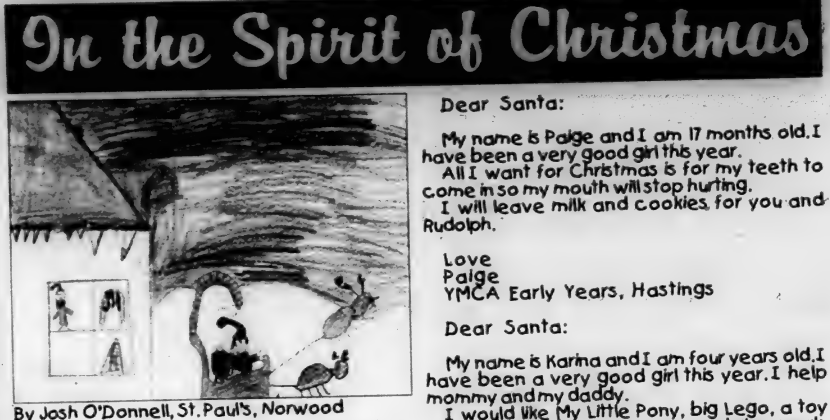 In the Spirit of Christmas
By Josh O'Donnell, St. Paul's, Norwood
Dear Santa:
My name is Paige and I am 17 months old. I
have been a very good girl this year.
All I want for Christmas is for my teeth to
come in so my mouth will stop hurting.
I will leave milk and cookies for you and
Rudolph.
Love
Paige
YMCA Early Years, Hastings
Dear Santa:
My name is Karina and I am four years old. I
have been a very good girl this year. I help
mommy and my daddy.
I would like My Little Pony, big Lego, a toy